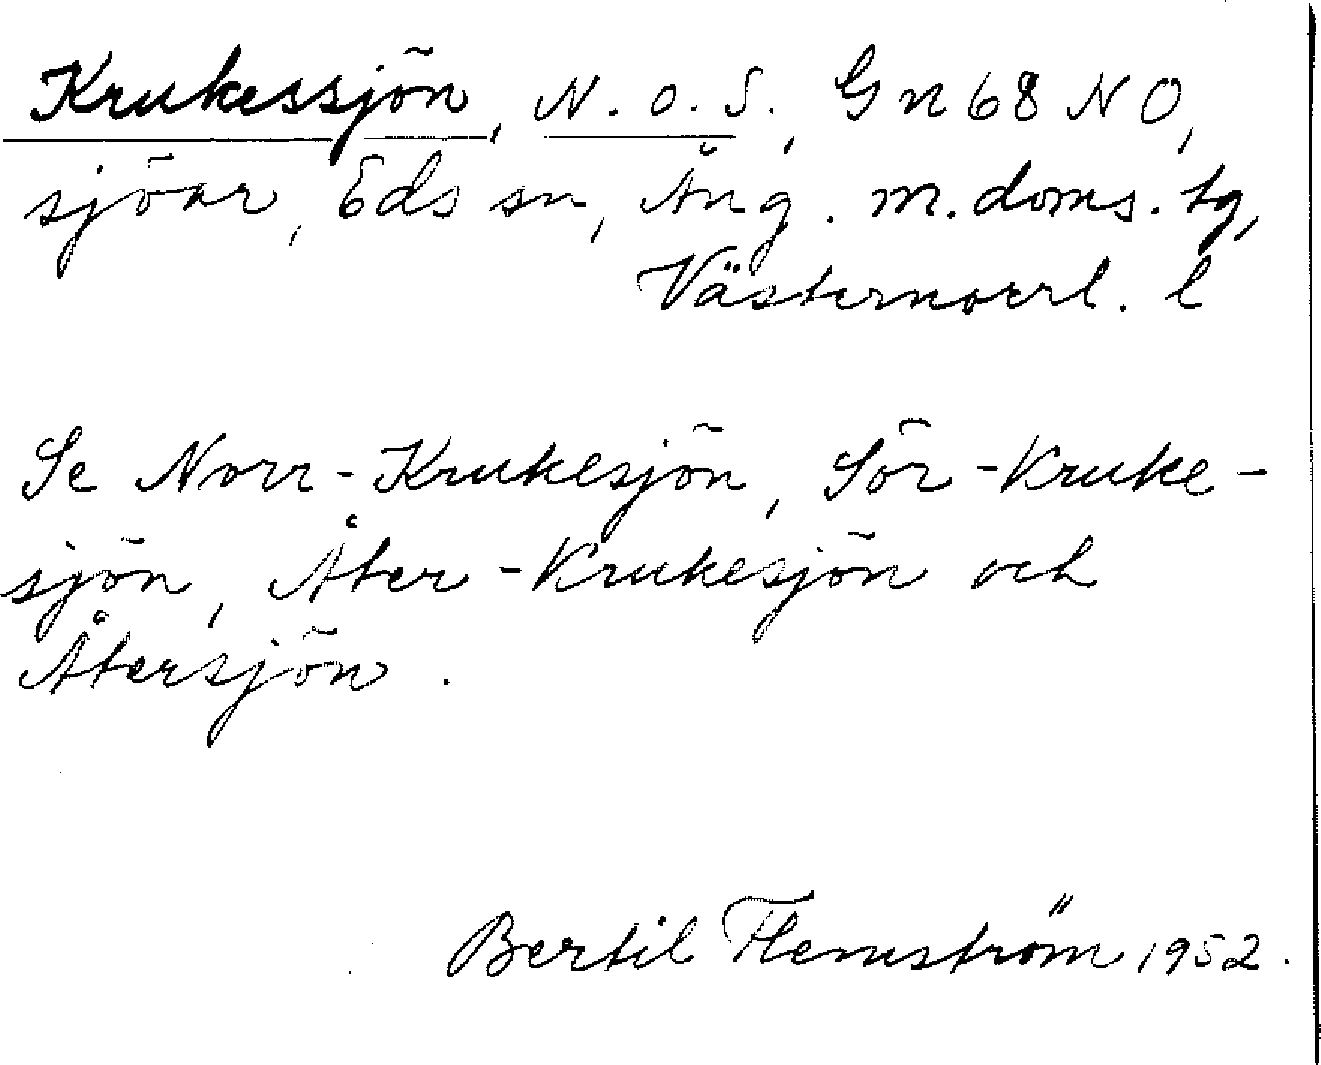 Krukessjön, N. o. S., Gn 68 NO,
sjöar, Eds sn, Ång. m. doms. tg,
Västernorrl. l
Se Norr-Krukesjön, Sör-Kruke-
sjön, Åter-Krukesjön och
Återsjön.
Bertil Flemström 1952.